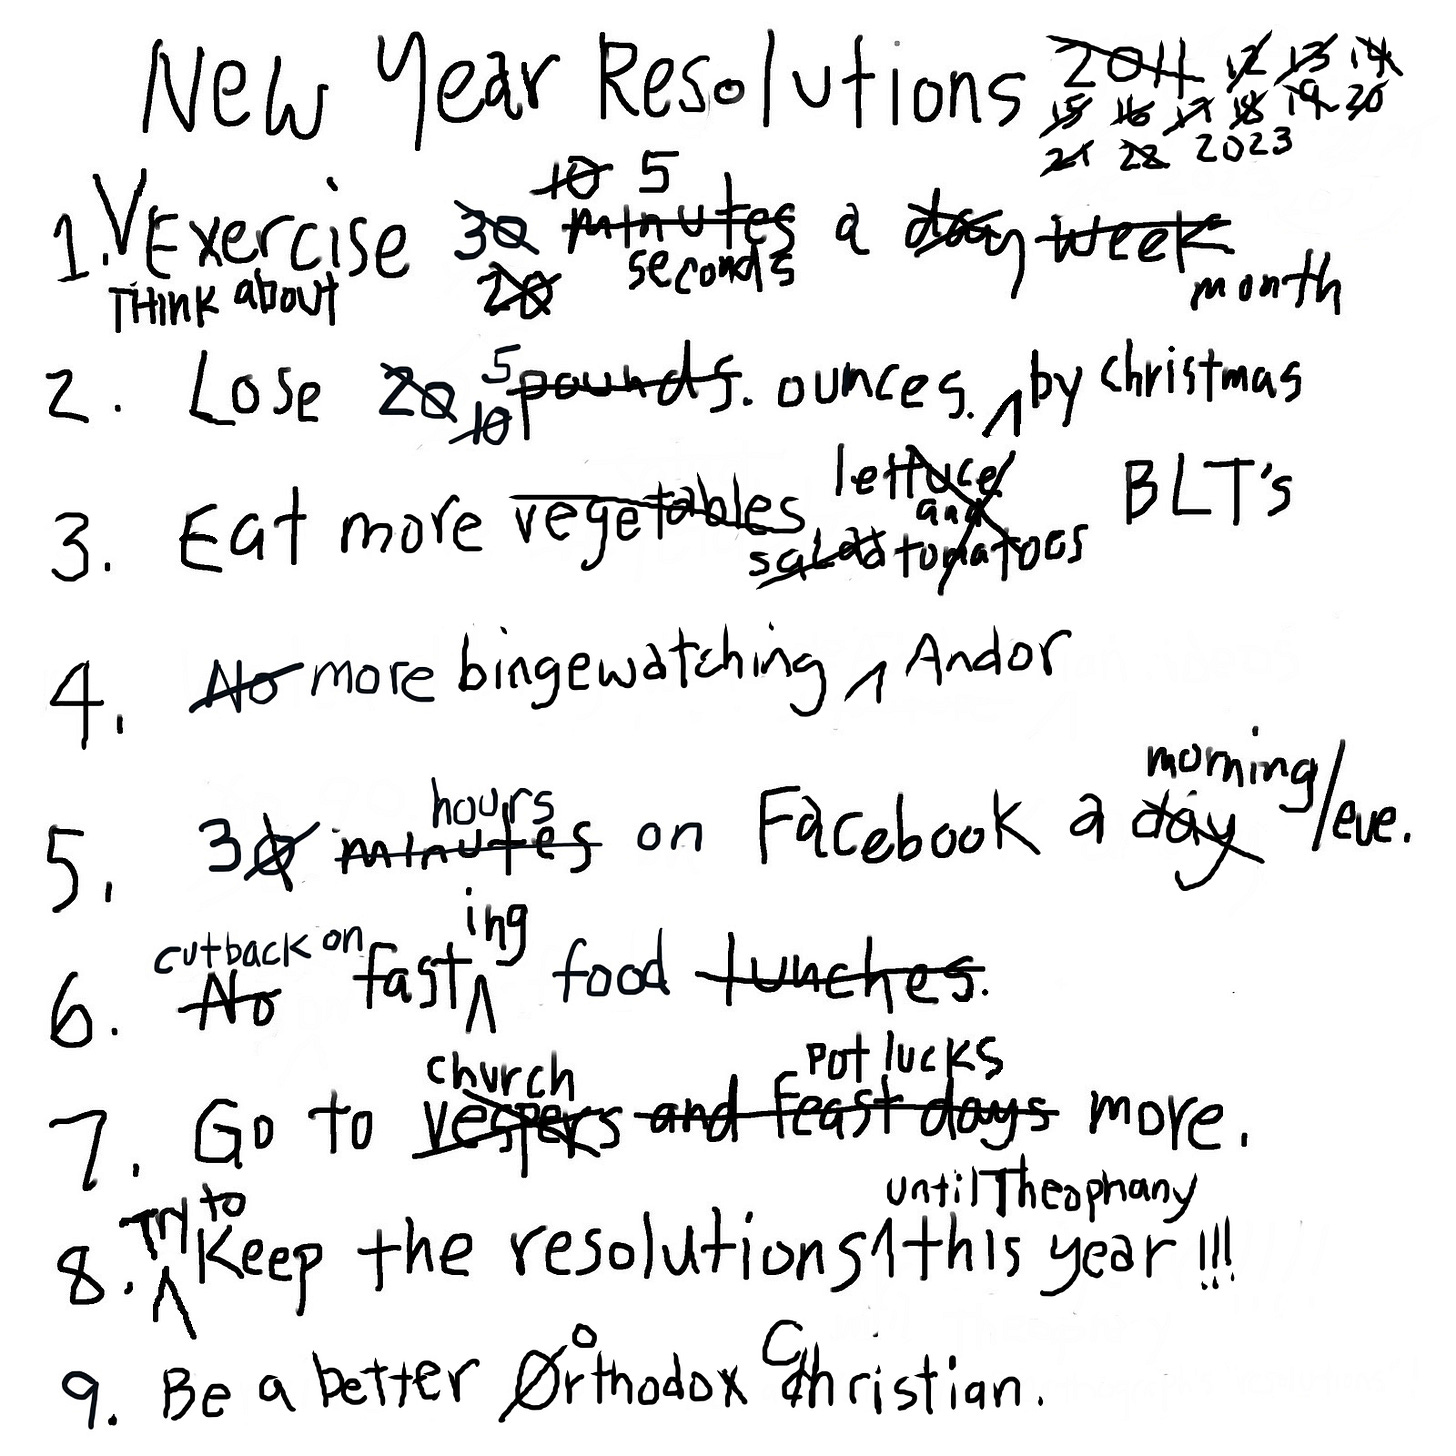 New Year Resolutions 2011 12 13 14
15 16 17 18 19 20
21 22 2023
10 5
1. V Exercise 30 minutes a day week
Think about 20 seconds month
2. Lose 20 5 pounds. ounces. ^ by christmas
10
lettuce
3. Eat more vegetables and BLT's
salad tomatoes
4. No more bingewatching ^ Andor
hours morning/eve.
5. 30 minutes on Facebook a day
cutback on ing
6. No fast ^ food lunches.
church potlucks
7. Go to vespers and feast days more.
Try to until Theophany
8. ^ Keep the resolutions ^ this year !!!
o C
9. Be a better Orthodox Christian.